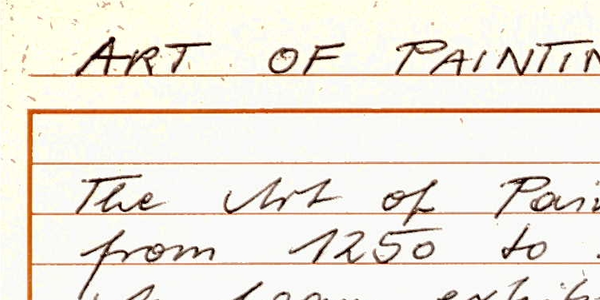 ART OF PAINTIN
The Art of Pain
from 1250 to